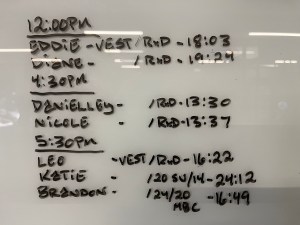 12:00PM
EDDIE - VEST/RxD - 18:03
DIANE - /RxD - 19:27
4:30PM
DANIELLEY - /RxD - 13:30
NICOLE - /RxD - 13:37
5:30PM
LEO - VEST/RxD - 16:22
KATIE - /20 SU/14 - 24:12
BRANDON - /24/20 - 16:49
MBC